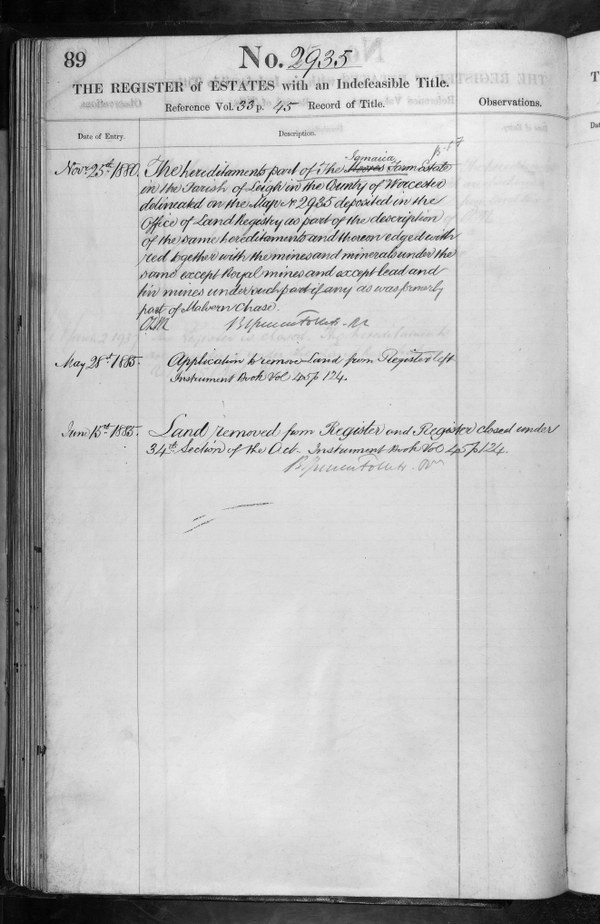 89
No. 2935
THE REGISTER of ESTATES with an Indefeasible Title.
Reference Vol. 33 p. 45 Record of Title.
Observations.
Date of Entry.
Description.
Jamaica
Novr 25th 1880. The hereditaments part of "The Moores Farm Estate
in the Parish of Leigh in the County of Worcester
delineated on the Map No 2935 deposited in the
Office of Land Registry as part of the description
of the same hereditaments and thereon edged with
red together with the mines and minerals under the
same except Royal mines and except lead and
tin mines under such part if any as was formerly
part of Malvern Chase.
May 28th 1885. Application to remove Land from Register left
Instrument Book Vol 45 p 124.
June 15th 1885. Land removed from Register and Register closed under
34th Section of the Act - Instrument Book Vol 45 p 124.